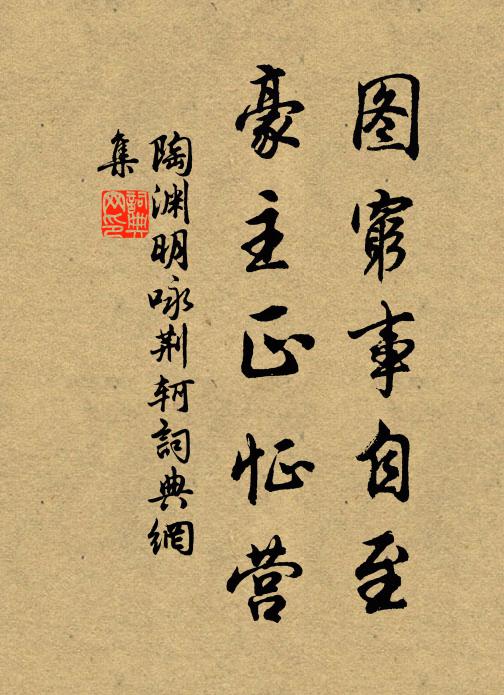 图窮事自至
豪主正怔营
陶渊明咏荆轲詞典網
集
詞典
网印